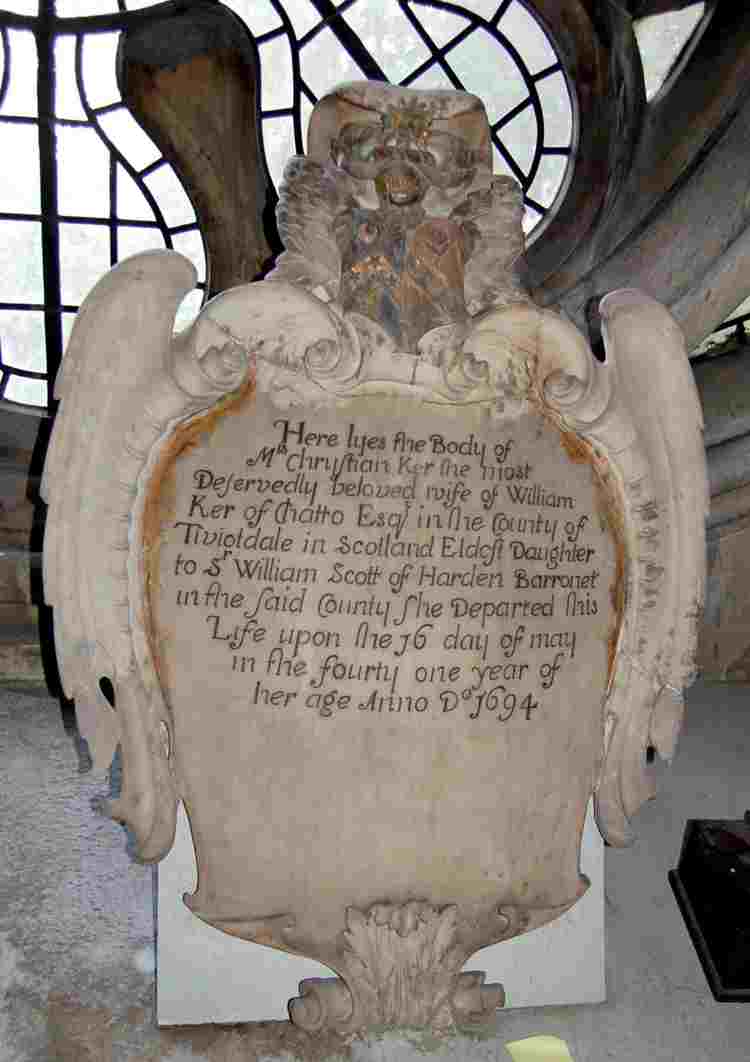 Here lyes the Body of
Mrs Chrystian Ker the most
Deservedly beloved wife of William
Ker of Chatto Esqr in the County of
Tiviotdale in Scotland Eldest Daughter
to Sr William Scott of Harden Barronet
in the said County she Departed this
Life upon the 16 day of may
in the fourty one year of
her age Anno Do 1694